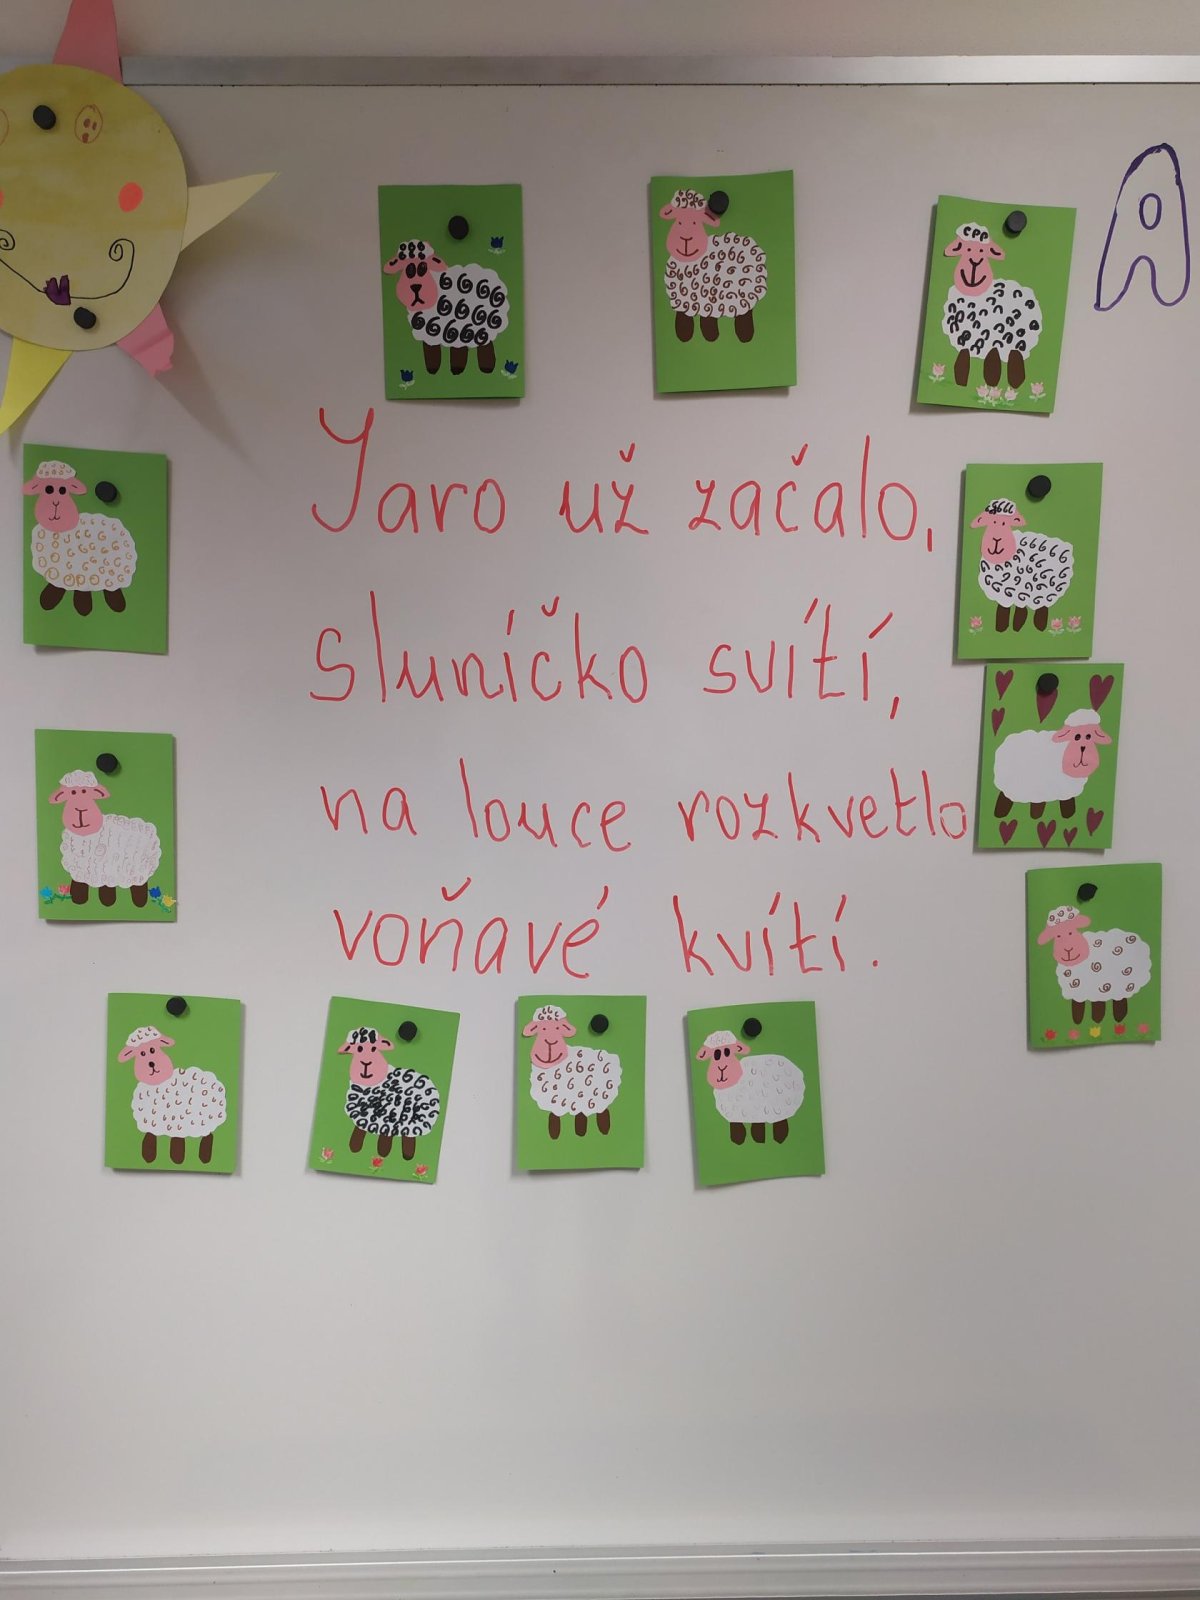 A
Jaro už začalo,
sluníčko svítí,
na louce rozkvetlo
voňavé kvítí.